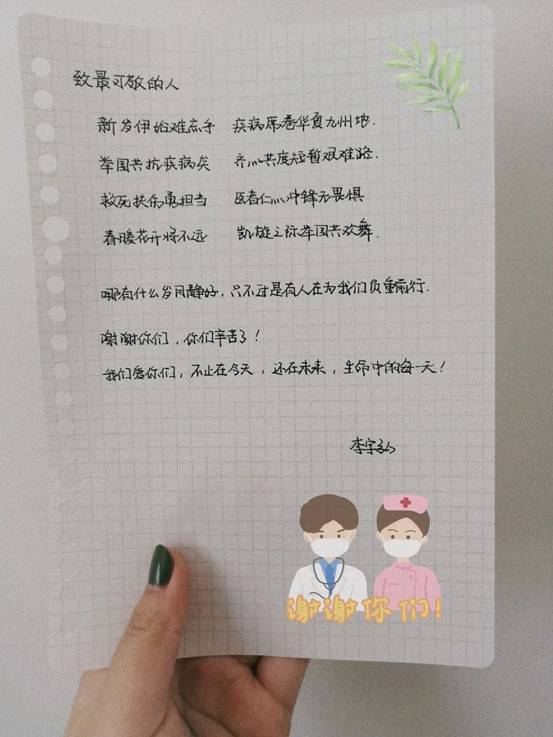 致最可敬的人
新岁伊始难忘年 疾病席卷华夏九州地.
举国共抗疾病矣 齐心共度短暂艰难路.
救死扶伤勇担当 医者仁心冲锋无畏惧
春暖花开将不远 凯旋之际举国共欢舞.
哪有什么岁月静好,只不过是有人在为我们负重前行.
谢谢你们,你们辛苦了!
我们爱你们,不止在今天,还在未来,生命中的每一天!
李宇弘
谢谢你们!